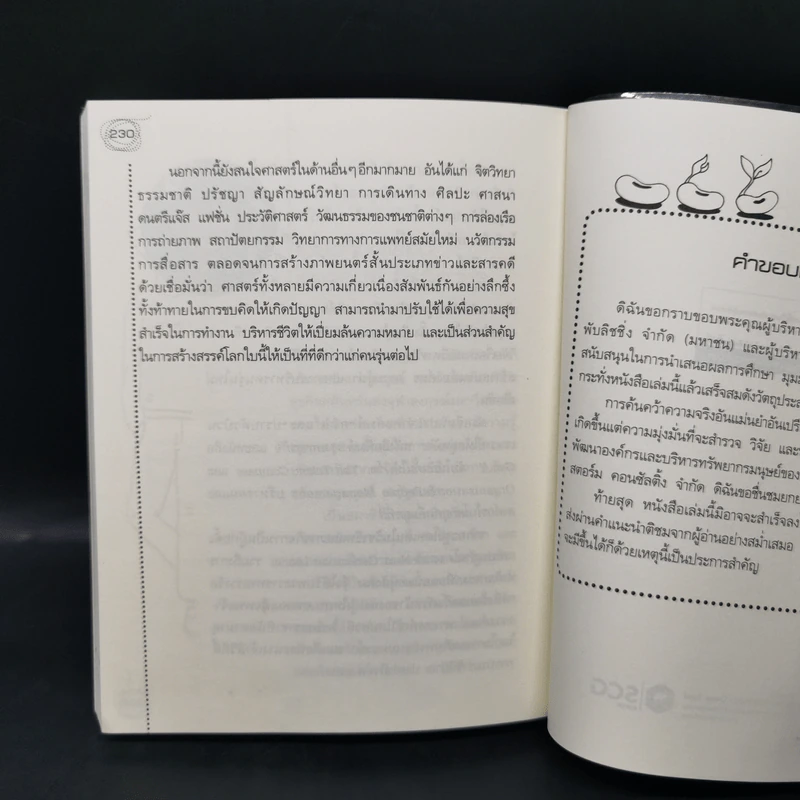 230
นอกจากนี้ยังสนใจศาสตร์ในด้านอื่นๆ อีกมากมาย อันได้แก่ จิตวิทยา
ธรรมชาติ ปรัชญา สัญลักษณ์วิทยา การเดินทาง ศิลปะ ศาสนา
ดนตรีแจ๊ส แฟชั่น ประวัติศาสตร์ วัฒนธรรมของชนชาติต่างๆ การล่องเรือ
การถ่ายภาพ สถาปัตยกรรม วิทยาการทางการแพทย์สมัยใหม่ นวัตกรรม
การสื่อสาร ตลอดจนการสร้างภาพยนตร์สั้นประเภทข่าวและสารคดี
ด้วยเชื่อมั่นว่า ศาสตร์ทั้งหลายมีความเกี่ยวเนื่องสัมพันธ์กันอย่างลึกซึ้ง
ทั้งท้าทายในการขบคิดให้เกิดปัญญา สามารถนำมาปรับใช้ได้เพื่อความสุข
สำเร็จในการทำงาน บริหารชีวิตให้เปี่ยมล้นความหมาย และเป็นส่วนสำคัญ
ในการสร้างสรรค์โลกใบนี้ให้เป็นที่ที่ดีกว่าแก่คนรุ่นต่อไป
คำขอบ
ดิฉันขอกราบขอบพระคุณผู้บริหา
พับลิชชิ่ง จำกัด (มหาชน) และผู้บริห
สนับสนุนในการนำเสนอผลการศึกษา มุมม
กระทั่งหนังสือเล่มนี้แล้วเสร็จสมดังวัตถุประส
การค้นคว้าความจริงอันแม่นยำอันเปรี
เกิดขึ้นแต่ความมุ่งมั่นที่จะสำรวจ วิจัย และ
พัฒนาองค์กรและบริหารทรัพยากรมนุษย์ของ
สตอร์ม คอนซัลติ้ง จำกัด ดิฉันขอชื่นชมยกย
ท้ายสุด หนังสือเล่มนี้มิอาจจะสำเร็จลง
ส่งผ่านคำแนะนำติชมจากผู้อ่านอย่างสม่ำเสมอ
จะมีขึ้นได้ก็ด้วยเหตุนี้เป็นประการสำคัญ